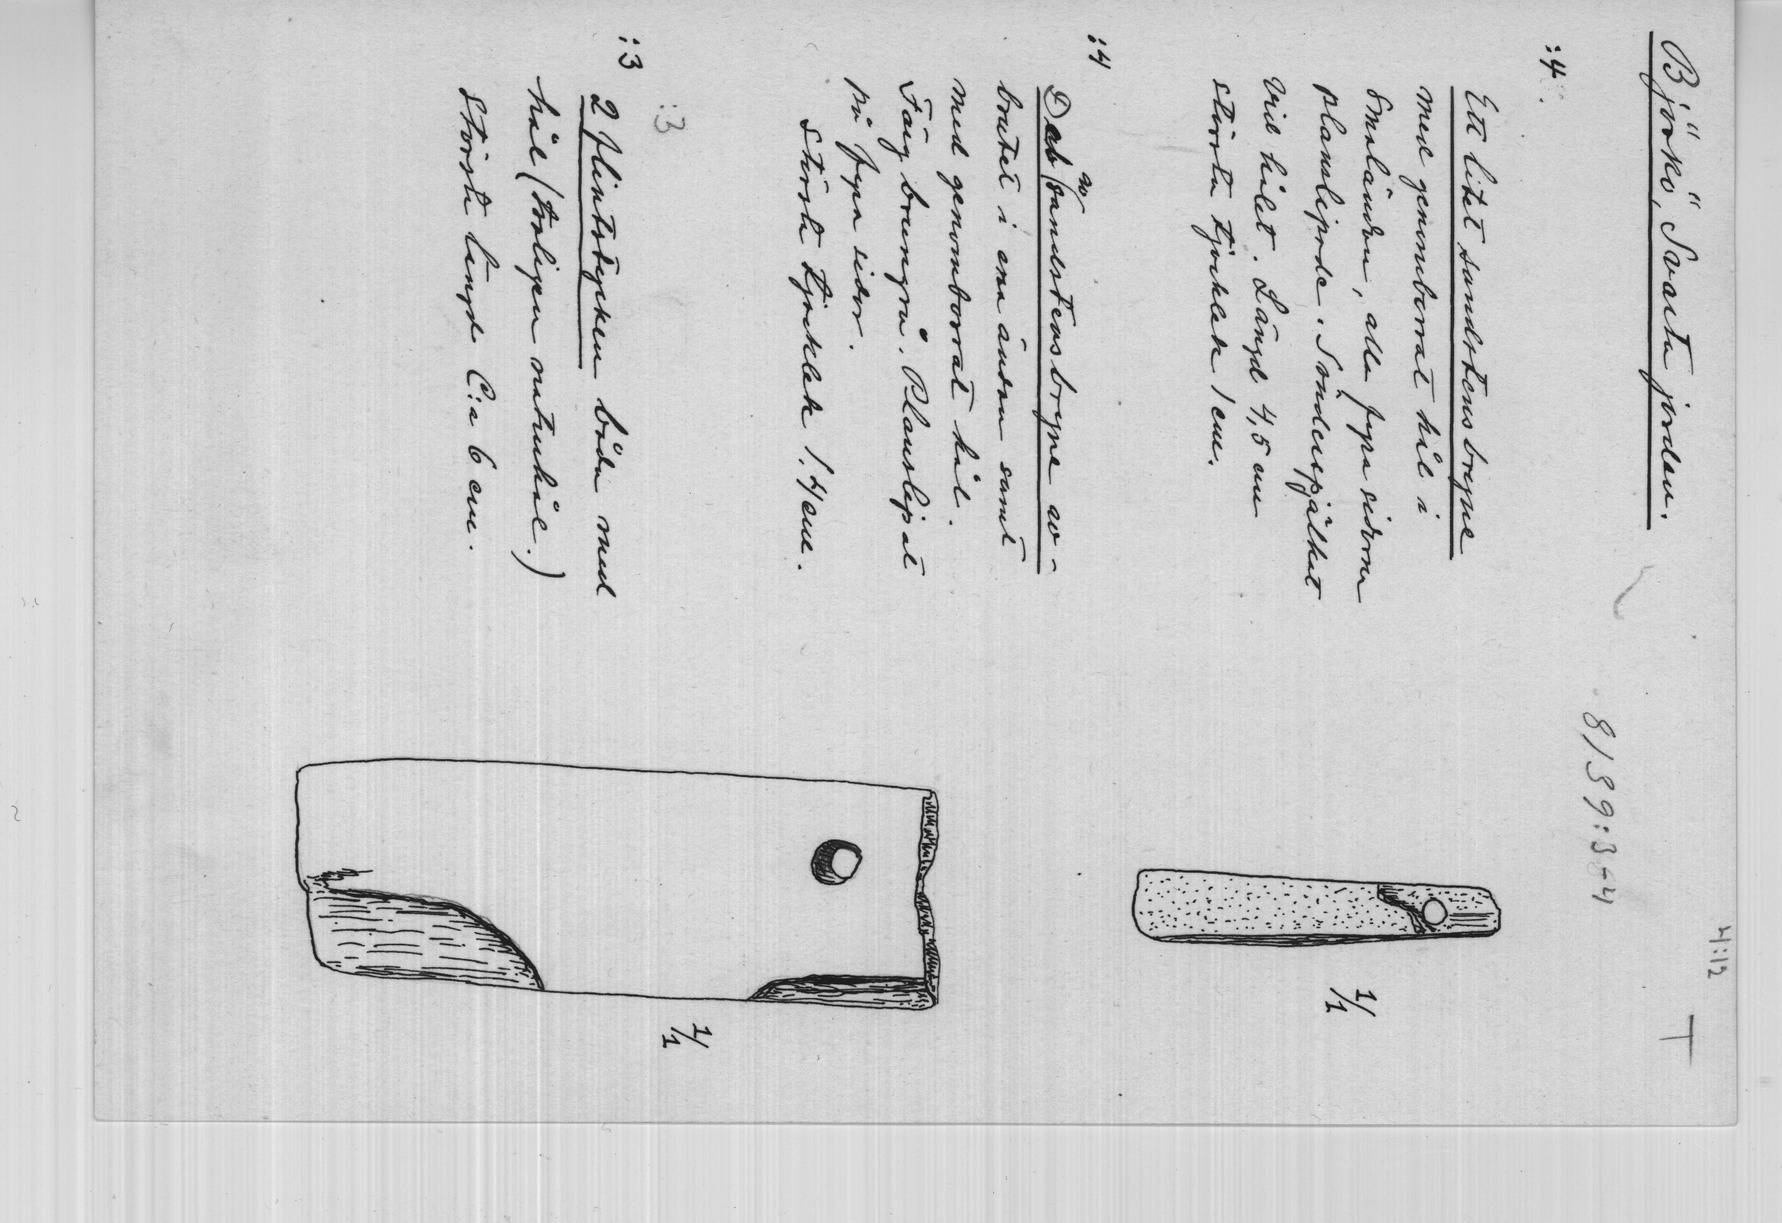 Björkö, Svarta jorden.
8139:3-4
4:12
T
:4.
Ett litet sandstensbryne
med genomborrat hål i
smaländan, alla fyra sidorna
planslipade. Sönderspjälkat
vid hålet. Längd 4,5 cm
största tjocklek 1 cm.
1/1
:4
Del av sandstensbryne av-
brutet i ena ändan samt
med genomborrat hål.
Färg brungrå. Planslipat
på fyra sidor.
Största tjocklek 1,4 cm.
:3
:3
2 flintstycken båda med
hål (troligen naturhål.)
Största längd C:a 6 cm.
1/1